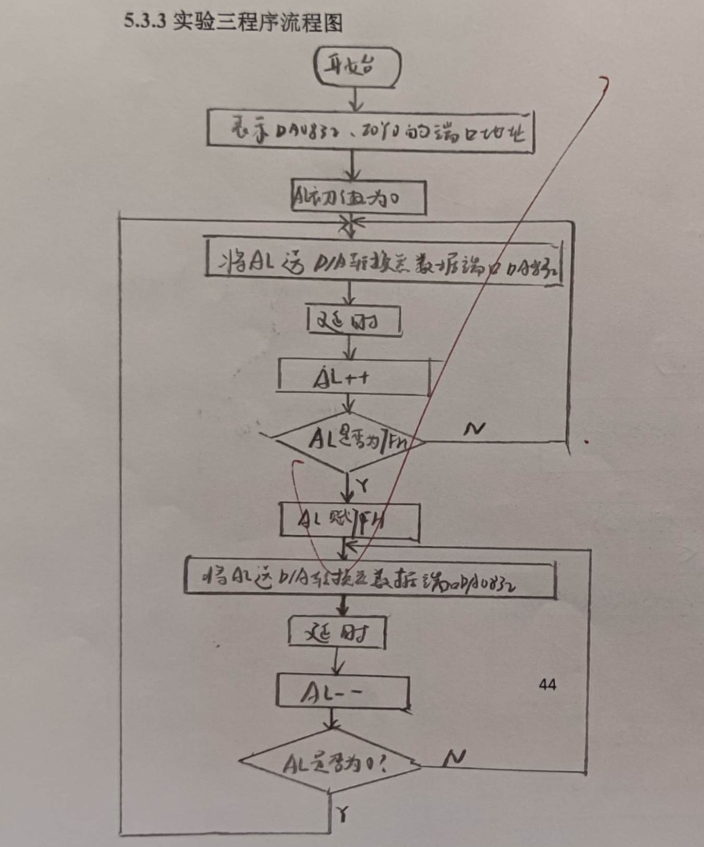 5.3.3 实验三程序流程图
开始
表示DA0832、IOY0的端口地址
AL初值为0
将AL送 D/A转换器数据端口DA0832
延时
AL++
AL是否为7FH
N
Y
AL赋7FH
将AL送D/A转换器数据端口DA0832
延时
44
AL--
AL是否为0?
N
Y